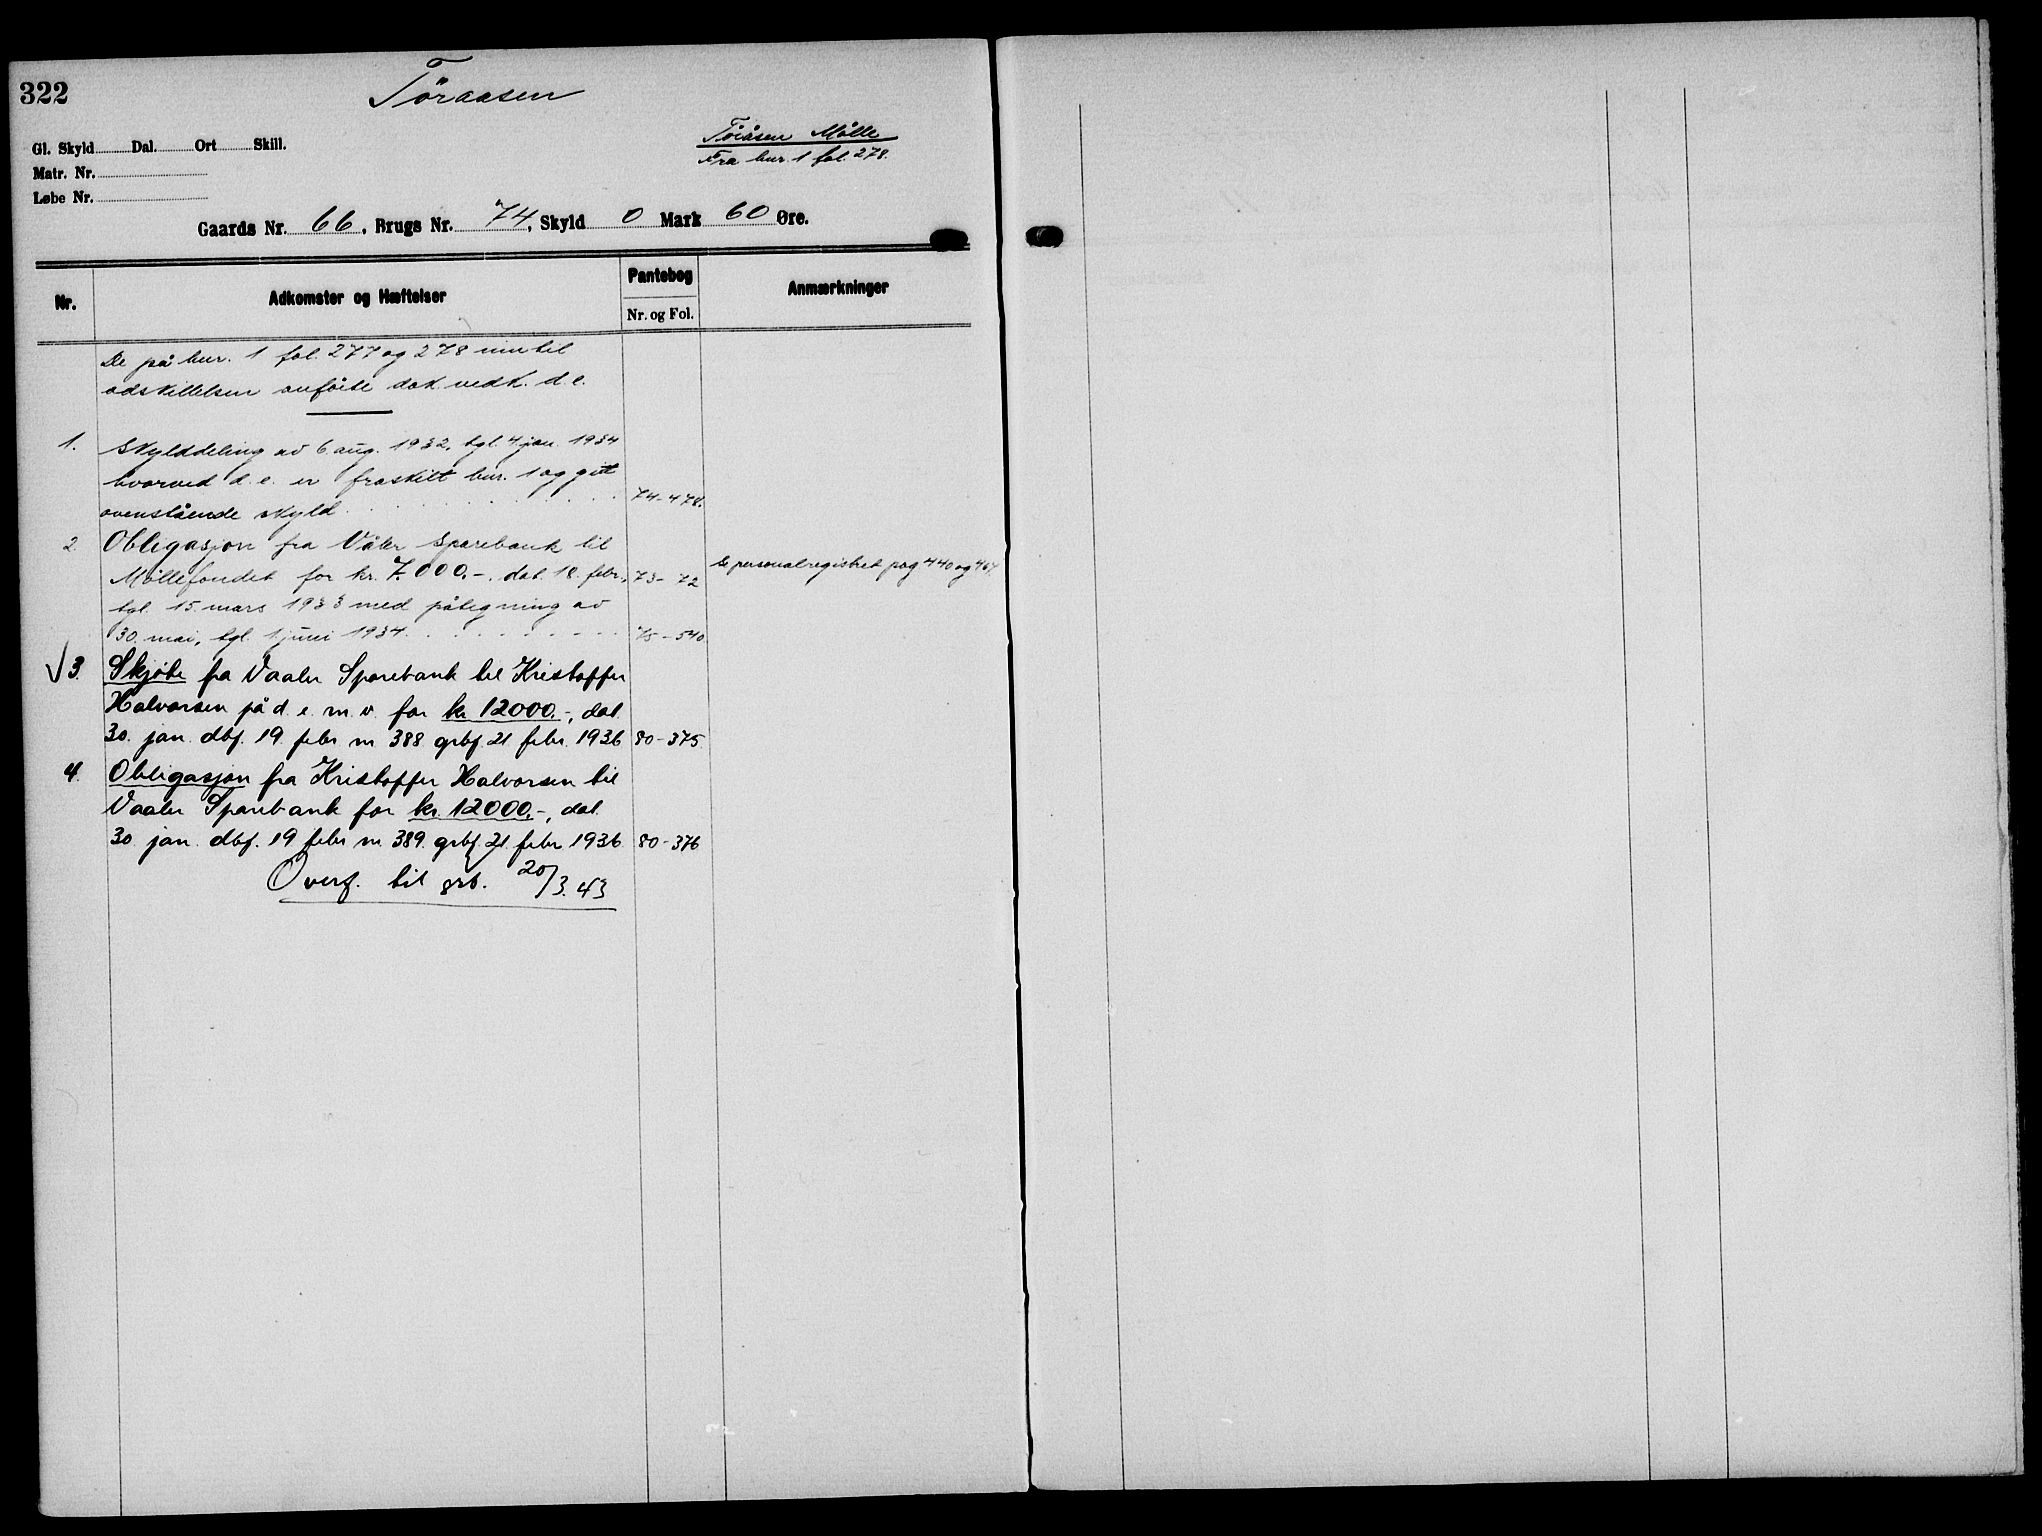 322
Töraasen
Töråsen Mölle
Fra bnr. 1 fol. 278.
Gl. Skyld Dal. Ort Skill.
Matr. Nr.
Løbe Nr.
Gaards Nr. 66, Brugs Nr. 74, Skyld 0 Mark 60 Øre.
Nr. Adkomster og Hæftelser Pantebog Nr. og Fol. Anmærkninger
De på bnr. 1 fol. 277 og 278 inntil
adskillelsen anförte dok. vedk. d.e.
1. Skylddeling av 6 aug. 1932, tgl. 4. jan. 1934
hvorved d.e. er fraskilt bnr. 1 og gitt
ovenstående skyld 74-478.
2. Obligasjon fra Våler Sparebank til
Möllefondet for kr. 7.000.-, dat. 18. febr., 73-72 Se personalregistret pag 440 og 467.
tgl. 15. mars 1933 med påtegning av
30. mai, tgl. 1. juni 1934. 75-540.
√ 3. Skjöte fra Vaaler Sparebank til Kristoffer
Halvorsen på d.e. m.v. for kr 12000.-, dat.
30. jan. dbf. 19. febr nr 388 grbf. 21 febr. 1936 80-375.
4. Obligasjon fra Kristoffer Halvorsen til
Vaaler Sparebank for kr. 12000.-, dat.
30 jan. dbf. 19 febr nr 389. grbf 21. febr 1936 80-376
Overf. til grb. 20/3.43